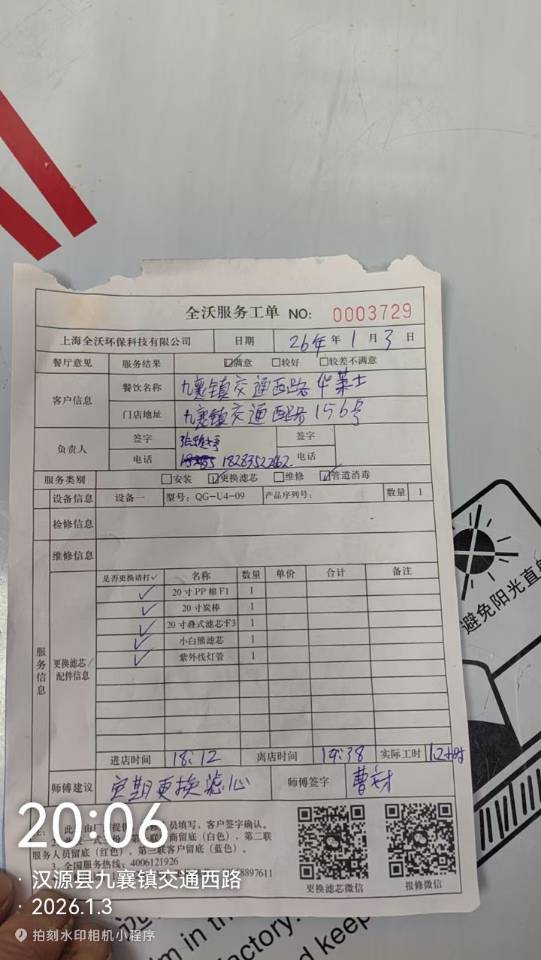 全沃服务工单 NO: 0003729
上海全沃环保科技有限公司 日期 26年 年 1 月 3 日
餐厅意见 服务结果 ☑满意 □较好 □较差不满意
客户信息 餐饮名称 九襄镇交通西路华莱士
门店地址 九襄镇交通西路156号
负责人 签字 签字
电话 18283522162 电话
服务类别 □安装 ☑更换滤芯 □维修 ☑管道消毒
设备信息 设备一 型号: QG-U4-09 产品序列号: 数量 1
检修信息
维修信息
服务信息
更换滤芯/配件信息
是否更换请打✓ 名称 数量 单价 合计 备注
✓ 20寸PP棉F1 1
✓ 20寸炭棒 1
✓ 20寸叠式滤芯F3 1
✓ 小白熊滤芯 1
✓ 紫外线灯管 1
进店时间 18:12 离店时间 19:38 实际工时 1.2小时
师傅建议 定期更换滤心 师傅签字
员填写，客户签字确认。
商留底（白色），第二联
服务人员留底（红色），第三联客户留底（蓝色）。
1.全国服务热线: 4006121926
8897611
更换滤芯微信 报修微信
20:06
汉源县九襄镇交通西路
2026.1.3
拍刻水印相机小程序
避免阳光直射
m in th
factory.
d keep